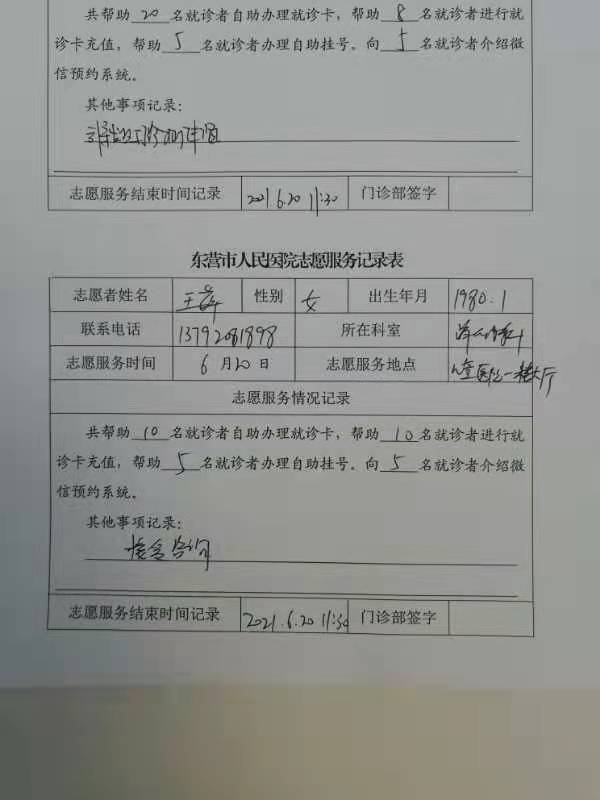 共帮助 20 名就诊者自助办理就诊卡，帮助 8 名就诊者进行就
诊卡充值，帮助 5 名就诊者办理自助挂号。向 5 名就诊者介绍微
信预约系统。
其他事项记录：
志愿服务结束时间记录 2021.6.20 11:30 门诊部签字
东营市人民医院志愿服务记录表
志愿者姓名 王 性别 女 出生年月 1980.1
联系电话 13792081898 所在科室
志愿服务时间 6月20日 志愿服务地点 一楼大厅
志愿服务情况记录
共帮助 10 名就诊者自助办理就诊卡，帮助 10 名就诊者进行就
诊卡充值，帮助 5 名就诊者办理自助挂号。向 5 名就诊者介绍微
信预约系统。
其他事项记录：
咨询
志愿服务结束时间记录 2021.6.20 11:30 门诊部签字